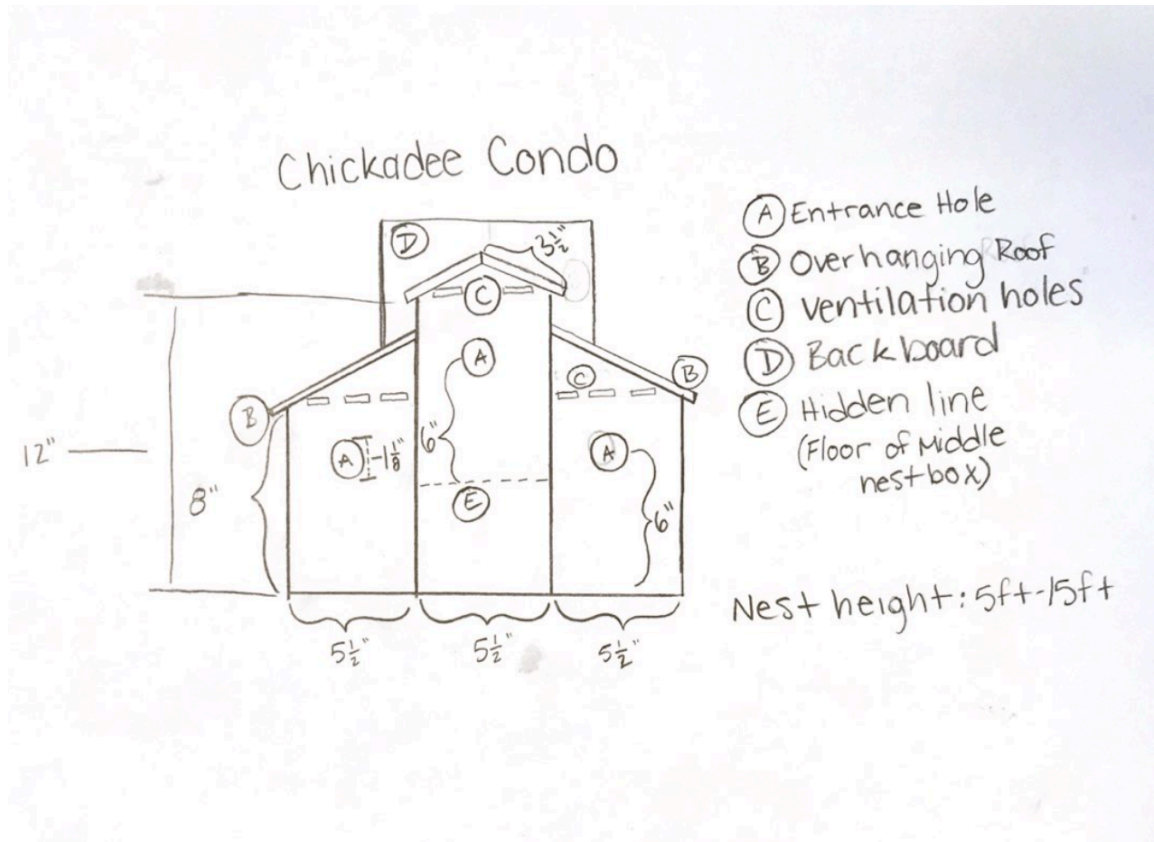 Chickadee Condo
D
3 1/2"
C
A
B
C
B
12"
8"
A
1 1/8"
6"
A
E
6"
5 1/2"
5 1/2"
5 1/2"
A Entrance Hole
B Overhanging Roof
C ventilation holes
D Backboard
E Hidden line
(Floor of Middle
nestbox)
Nest height: 5ft-15ft